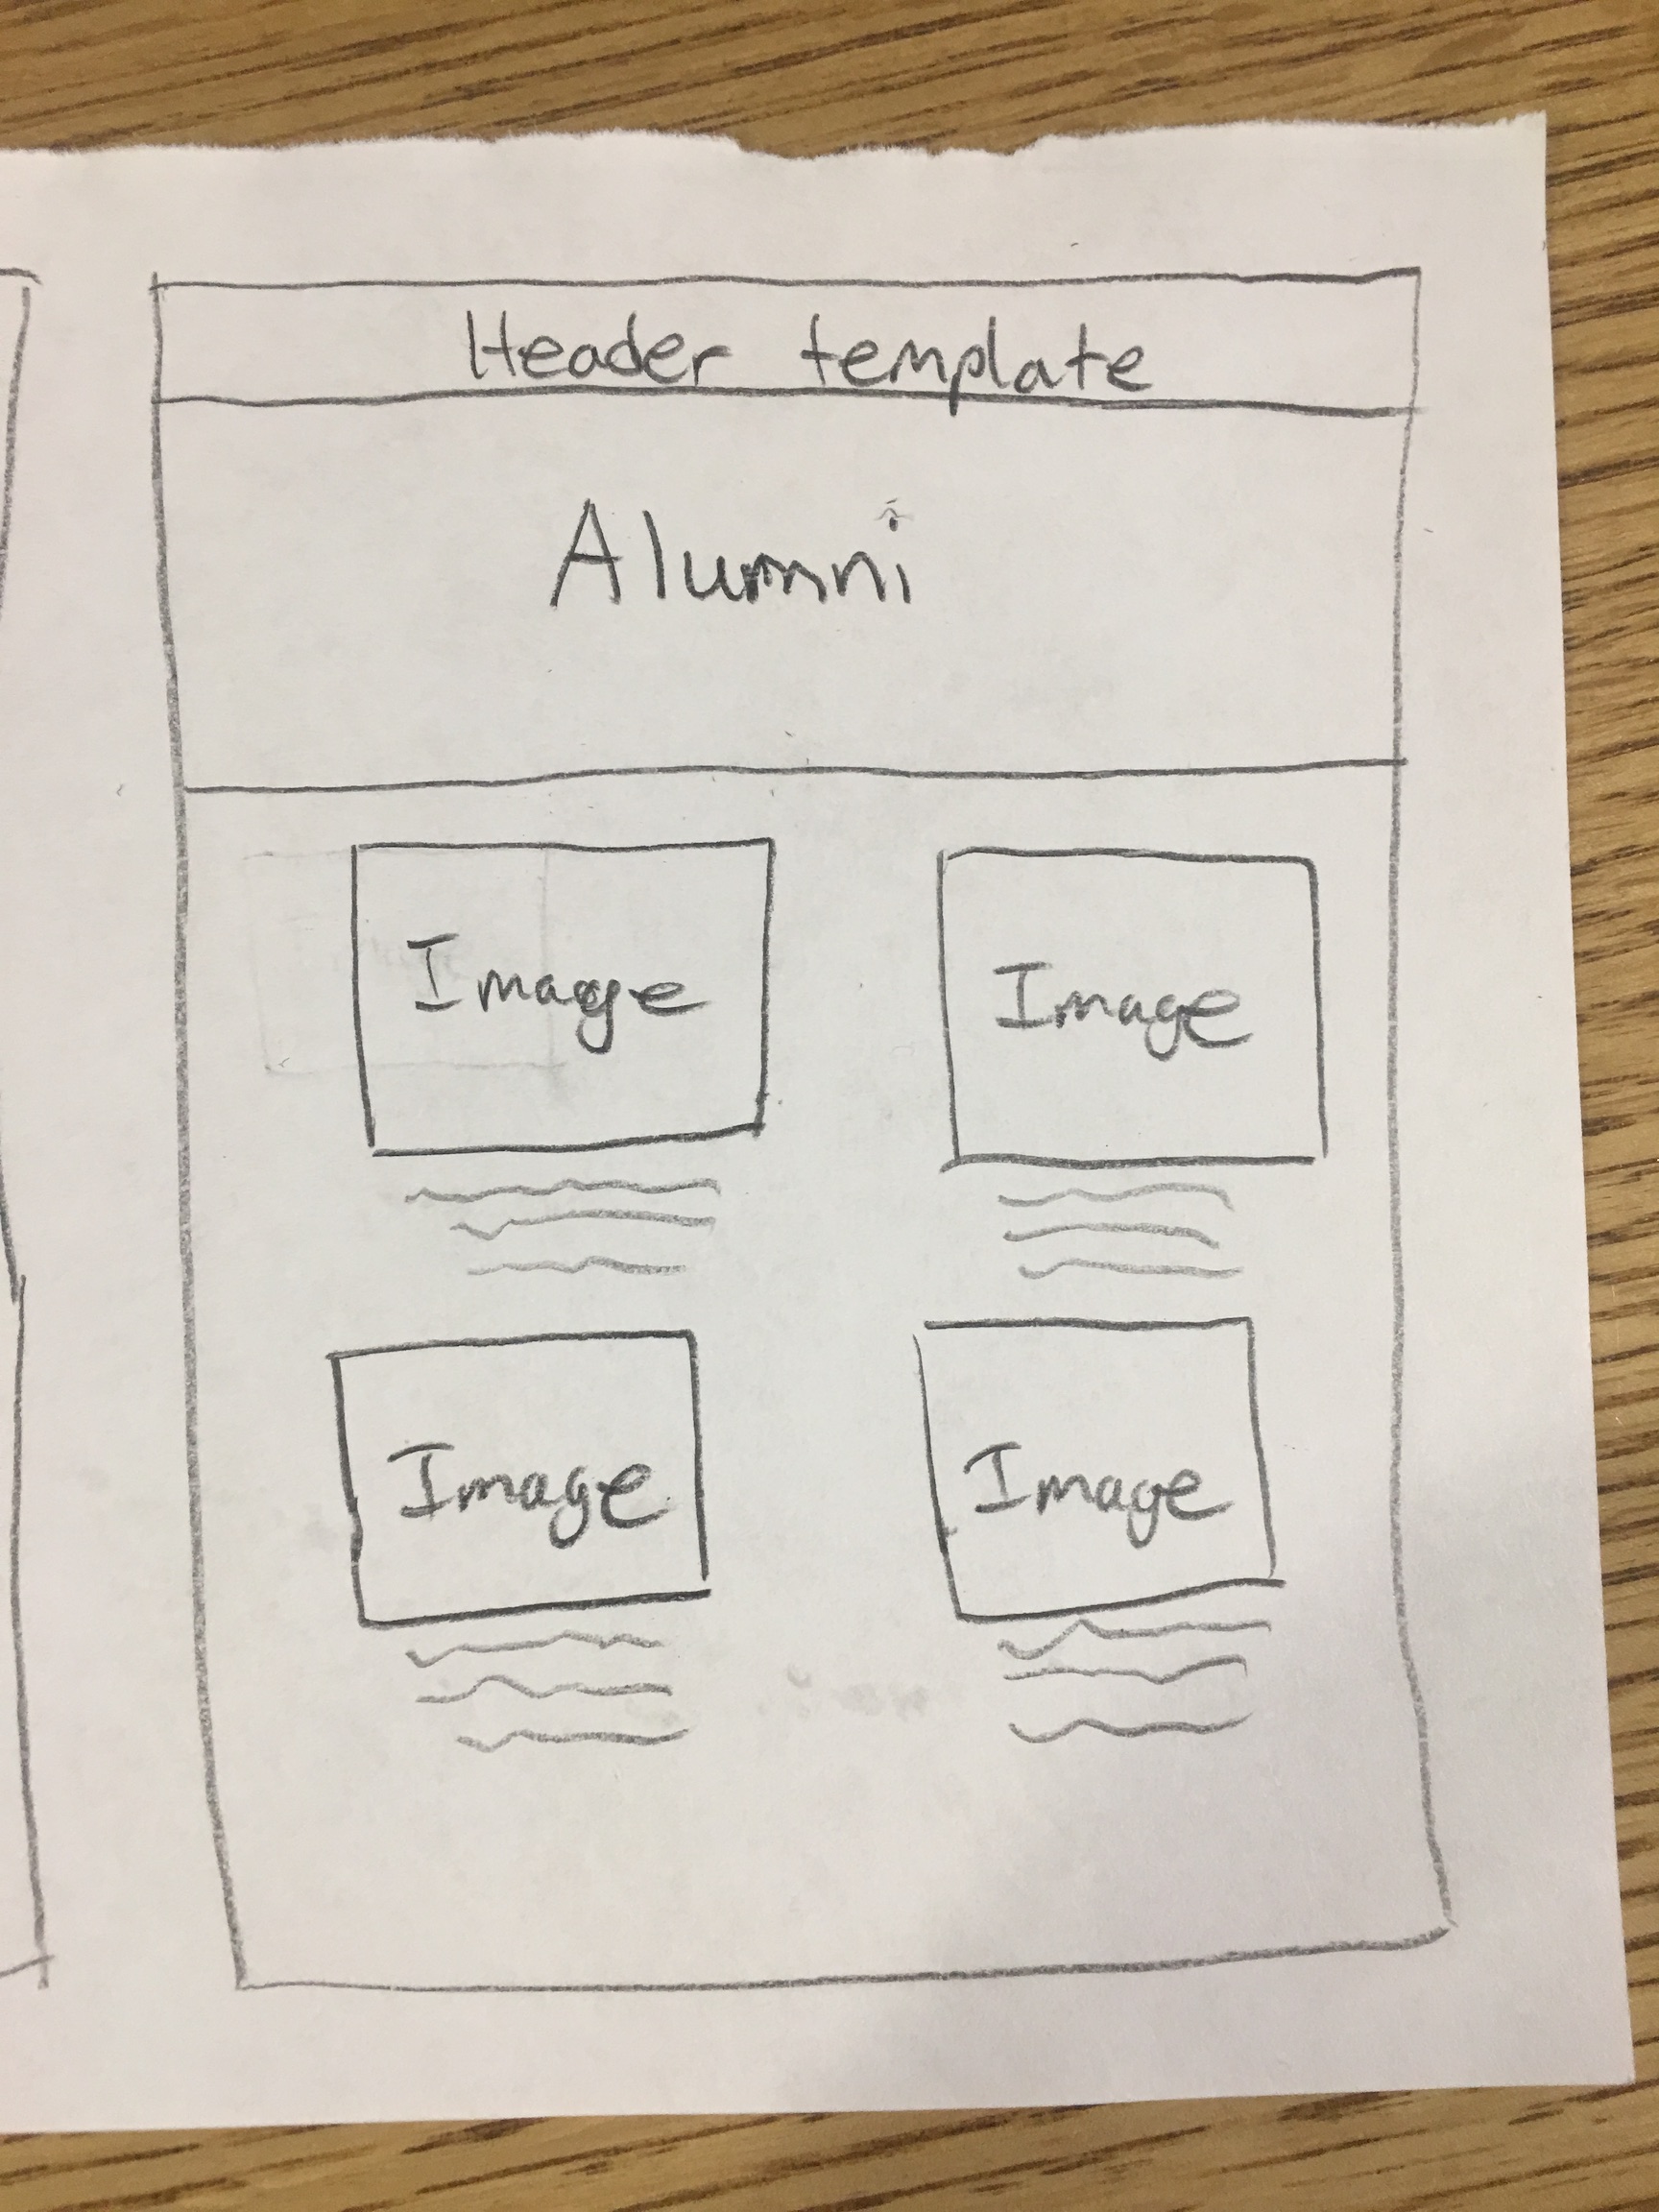 Header template
Alumni
Image
Image
Image
Image